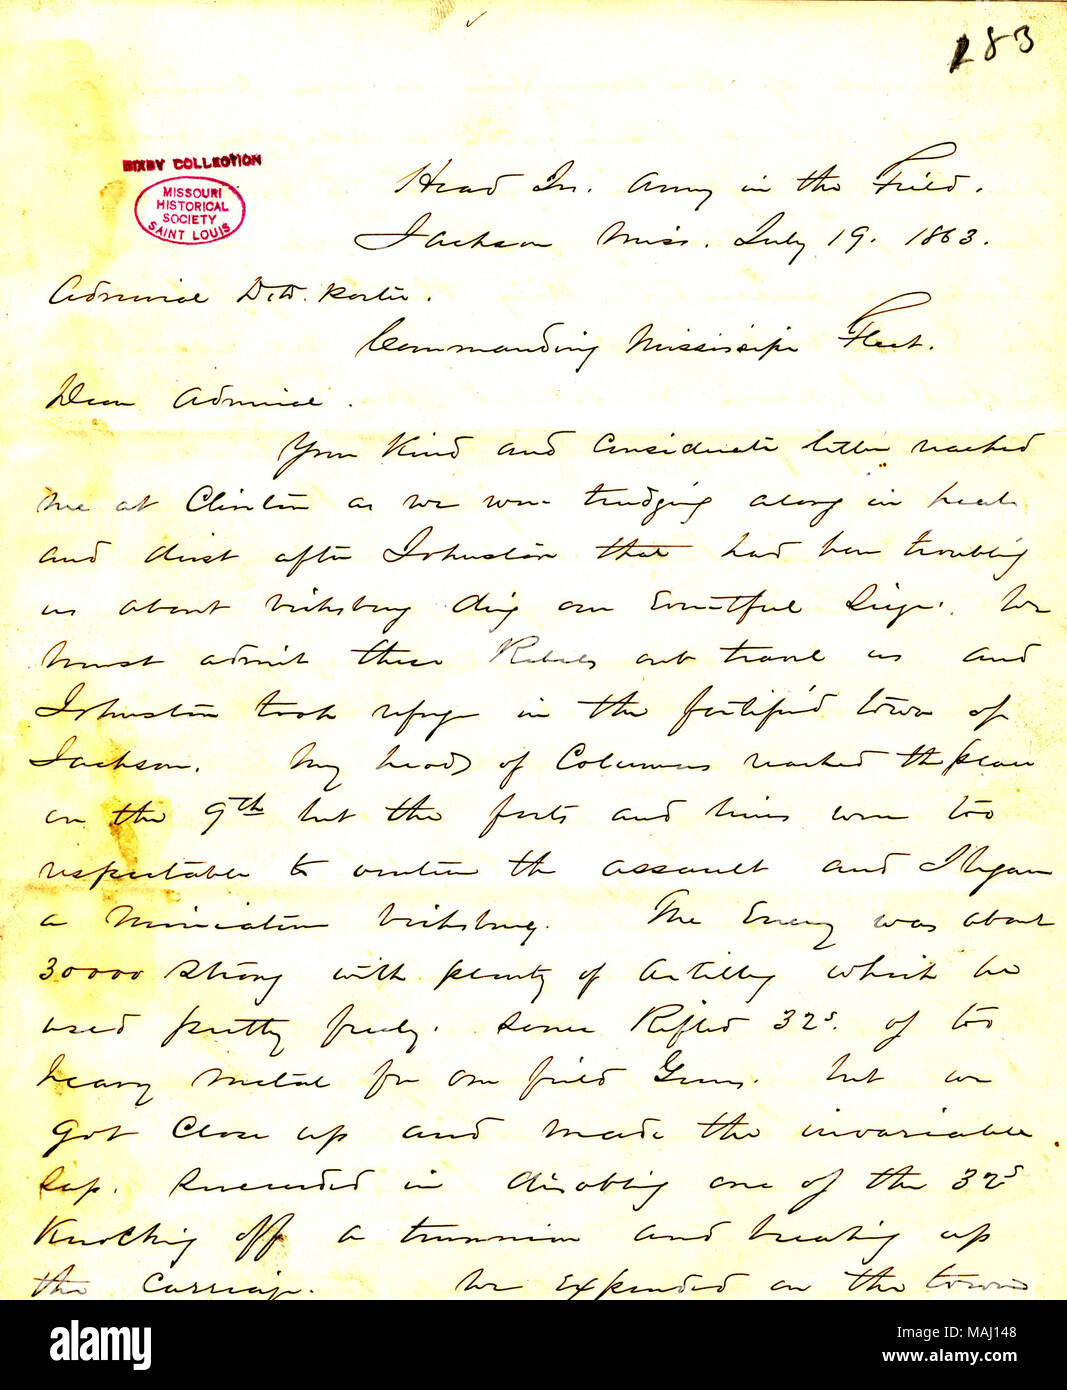 183
BIXBY COLLECTION
MISSOURI
HISTORICAL
SOCIETY
SAINT LOUIS
Head Qr. Army in the Field.
Jackson Miss. July 19. 1863.
Admiral D.D. Porter.
Commanding Mississippi Fleet.
Dear Admiral.
Your Kind and Considerate letter reached
me at Clinton as we were trudging along in heat
and dust after Johnston that had been troubling
us about Vicksburg during our Eventful Siege. We
must admit these Rebels out travel us and
Johnston took refuge in the fortified town of
Jackson. My heads of Columns reached the place
on the 9th but the forts and lines were too
respectable to venture the assault and I began
a Miniature Vicksburg. The Enemy was about
30000 strong with plenty of Artillery which he
used pretty freely. Some Rifled 32s. of too
heavy metal for our field Guns. but we
got Close up and made the invariable
Sap. Succeeded in disabling one of the 32s
Knocking off a trunnion and breaking up
the Carriage. We Expended on the town
alamy
Image ID: MAJ148
www.alamy.com